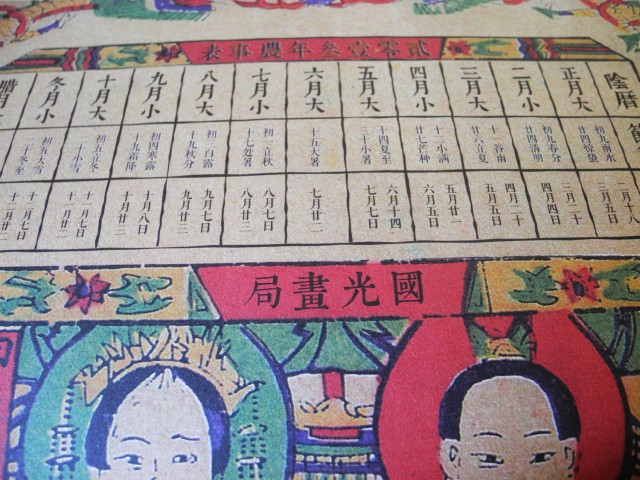 貳零壹叁年農事表
陰曆 正月大 二月小 三月大 四月小 五月大 六月大 七月小 八月大 九月小 十月大 冬月小 臘月大
節
初九雨水
廿四驚蟄
初九春分
廿四清明
十一谷雨
廿六立夏
十二小滿
廿七芒种
十四夏至
三十小暑
十五大暑
初一立秋
十七处暑
初三白露
十九秋分
初四寒露
十九霜降
初五立冬
二十小雪
初五大雪
二十冬至
二月十八
三月五日
三月二十
四月四日
四月二十
五月五日
五月廿一
六月五日
六月十四
七月七日
七月廿二
八月七日
八月廿三
九月七日
九月廿三
十月八日
十月廿三
十一月七日
十一月廿二
十二月七日
十二月廿二
國光畫局